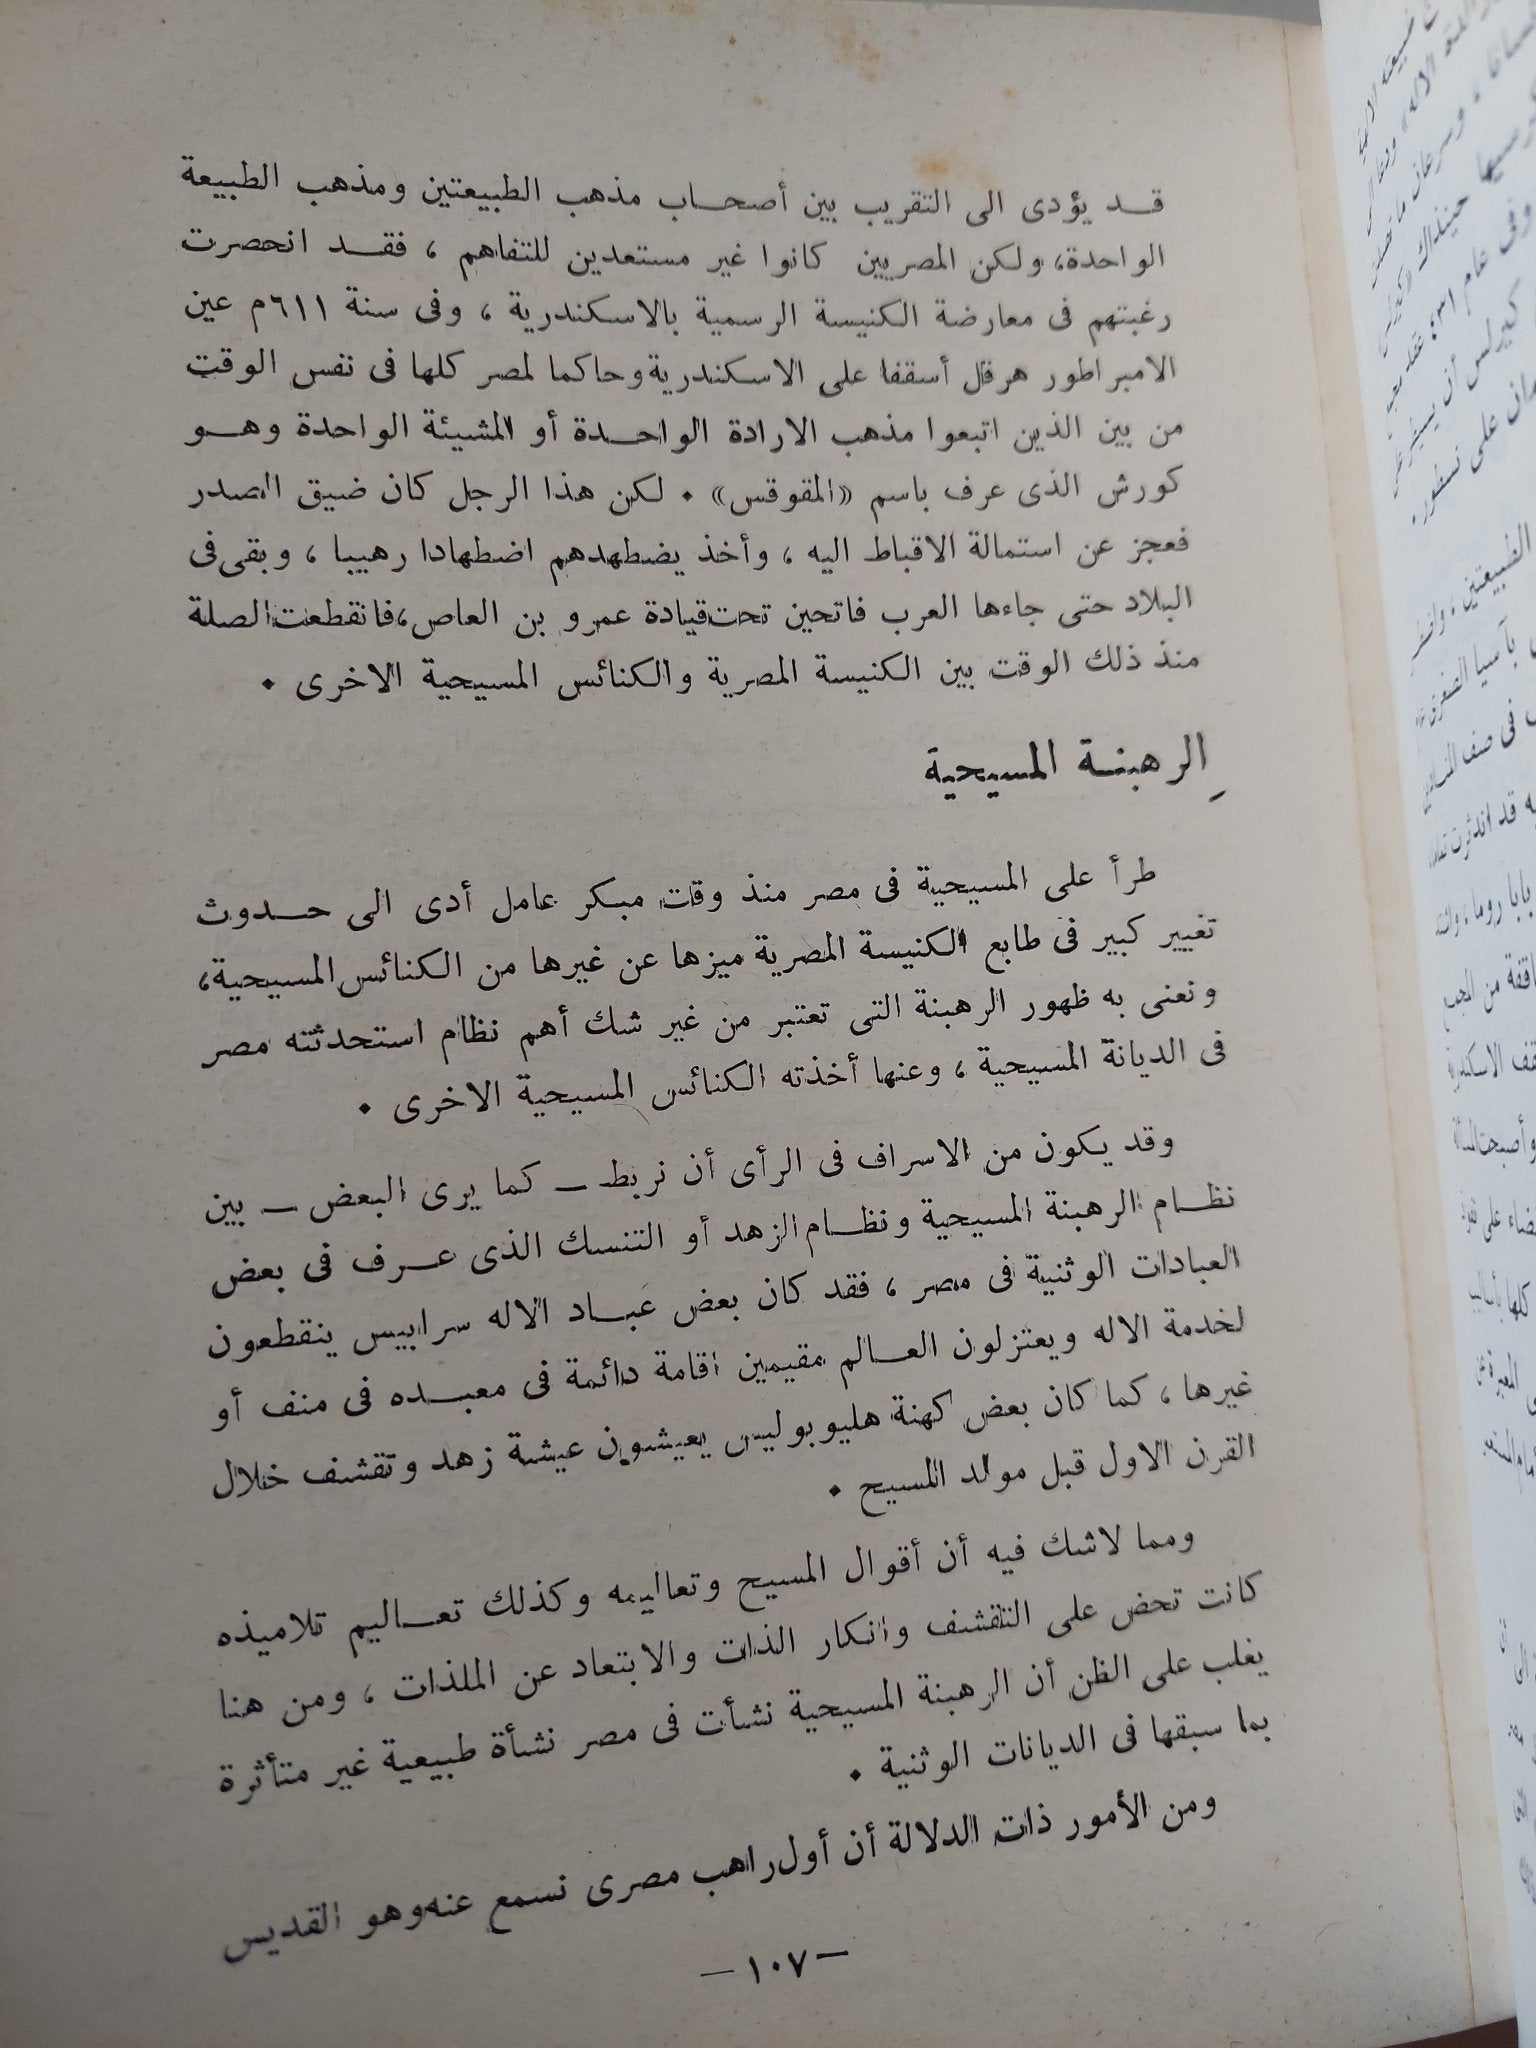 قد يؤدى الى التقريب بين أصحاب مذهب الطبيعتين ومذهب الطبيعة
الواحدة، ولكن المصريين كانوا غير مستعدين للتفاهم ، فقد انحصرت
رغبتهم فى معارضة الكنيسة الرسمية بالاسكندرية ، وفى سنة ٦١١م عين
الامبراطور هرقل أسقفا على الاسكندرية وحاكما لمصر كلها فى نفس الوقت
من بين الذين اتبعوا مذهب الارادة الواحدة أو المشيئة الواحدة وهو
كورش الذى عرف باسم «المقوقس» . لكن هذا الرجل كان ضيق الصدر
فعجز عن استمالة الاقباط اليه ، وأخذ يضطهدهم اضطهادا رهيبا ، وبقى فى
البلاد حتى جاءها العرب فاتحين تحت قيادة عمرو بن العاص، فانقطعت الصلة
منذ ذلك الوقت بين الكنيسة المصرية والكنائس المسيحية الاخرى .
الرهبنة المسيحية
طرأ على المسيحية فى مصر منذ وقت مبكر عامل أدى الى حدوث
تغيير كبير فى طابع الكنيسة المصرية ميزها عن غيرها من الكنائس المسيحية،
ونعنى به ظهور الرهبنة التى تعتبر من غير شك أهم نظام استحدثته مصر
فى الديانة المسيحية ، وعنها أخذته الكنائس المسيحية الاخرى .
وقد يكون من الاسراف فى الرأى أن نربط – كما يرى البعض – بين
نظام الرهبنة المسيحية ونظام الزهد أو التنسك الذى عرف فى بعض
العبادات الوثنية فى مصر ، فقد كان بعض عباد الاله سرابيس ينقطعون
لخدمة الاله ويعتزلون العالم مقيمين اقامة دائمة فى معبده فى منف أو
غيرها ، كما كان بعض كهنة هليوبوليس يعيشون عيشة زهد وتقشف خلال
القرن الاول قبل مولد المسيح .
ومما لاشك فيه أن أقوال المسيح وتعاليمه وكذلك تعاليم تلاميذه
كانت تحض على التقشف وانكار الذات والابتعاد عن الملذات ، ومن هنا
يغلب على الظن أن الرهبنة المسيحية نشأت فى مصر نشأة طبيعية غير متأثرة
بما سبقها فى الديانات الوثنية .
ومن الأمور ذات الدلالة أن أول راهب مصرى نسمع عنه وهو القديس
– ١٠٧ –